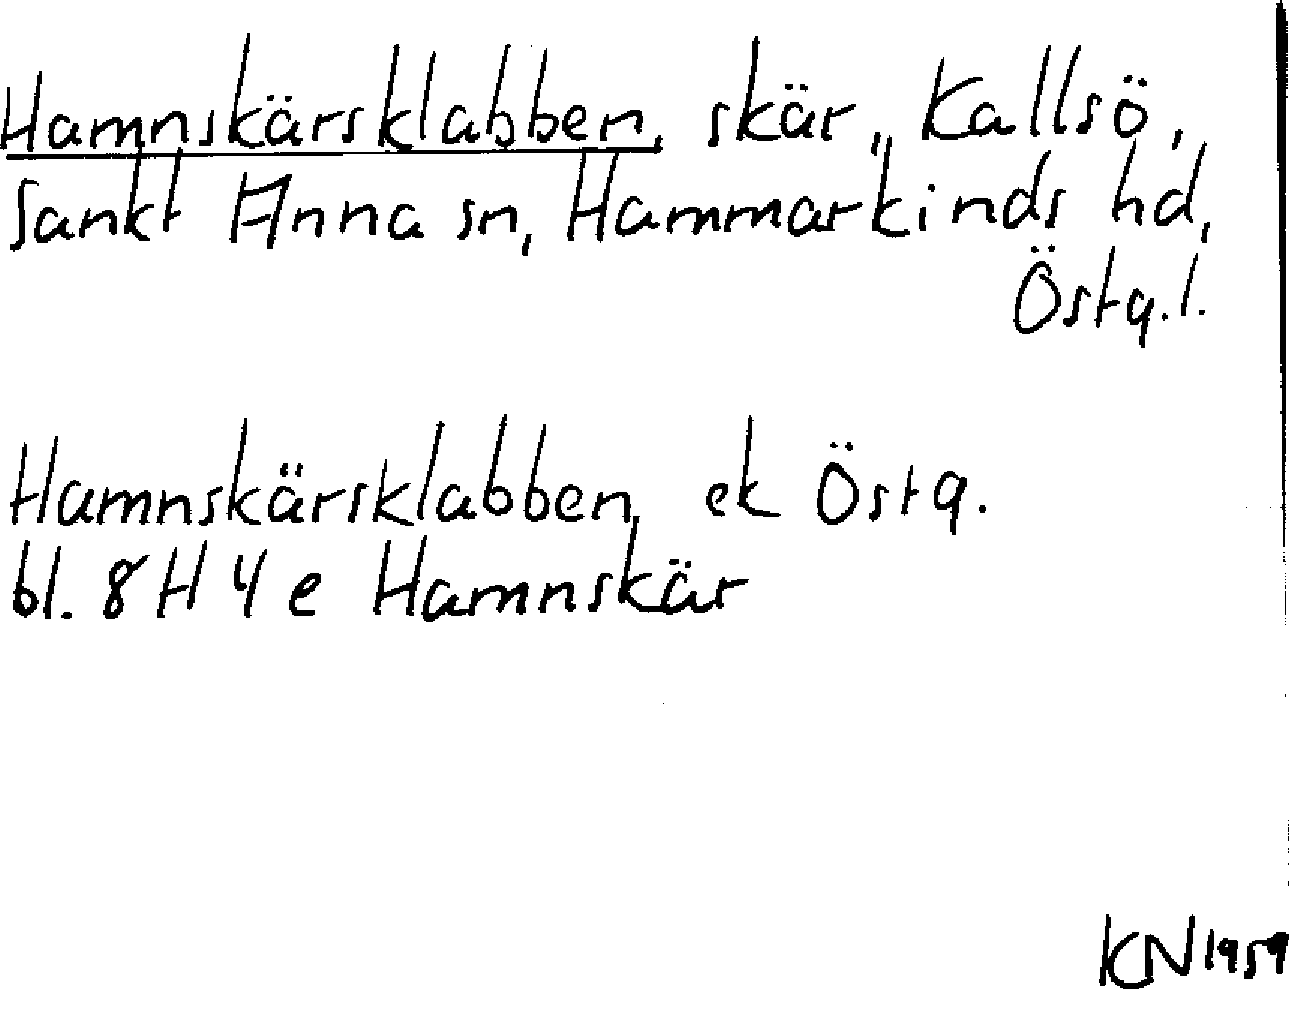 Hamnskärsklabben, skär, Kallsö,
Sankt Anna sn, Hammarkinds hd,
Östg.l.
Hamnskärsklabben, ek Östg.
bl. 8H 4e Hamnskär
KN 1959